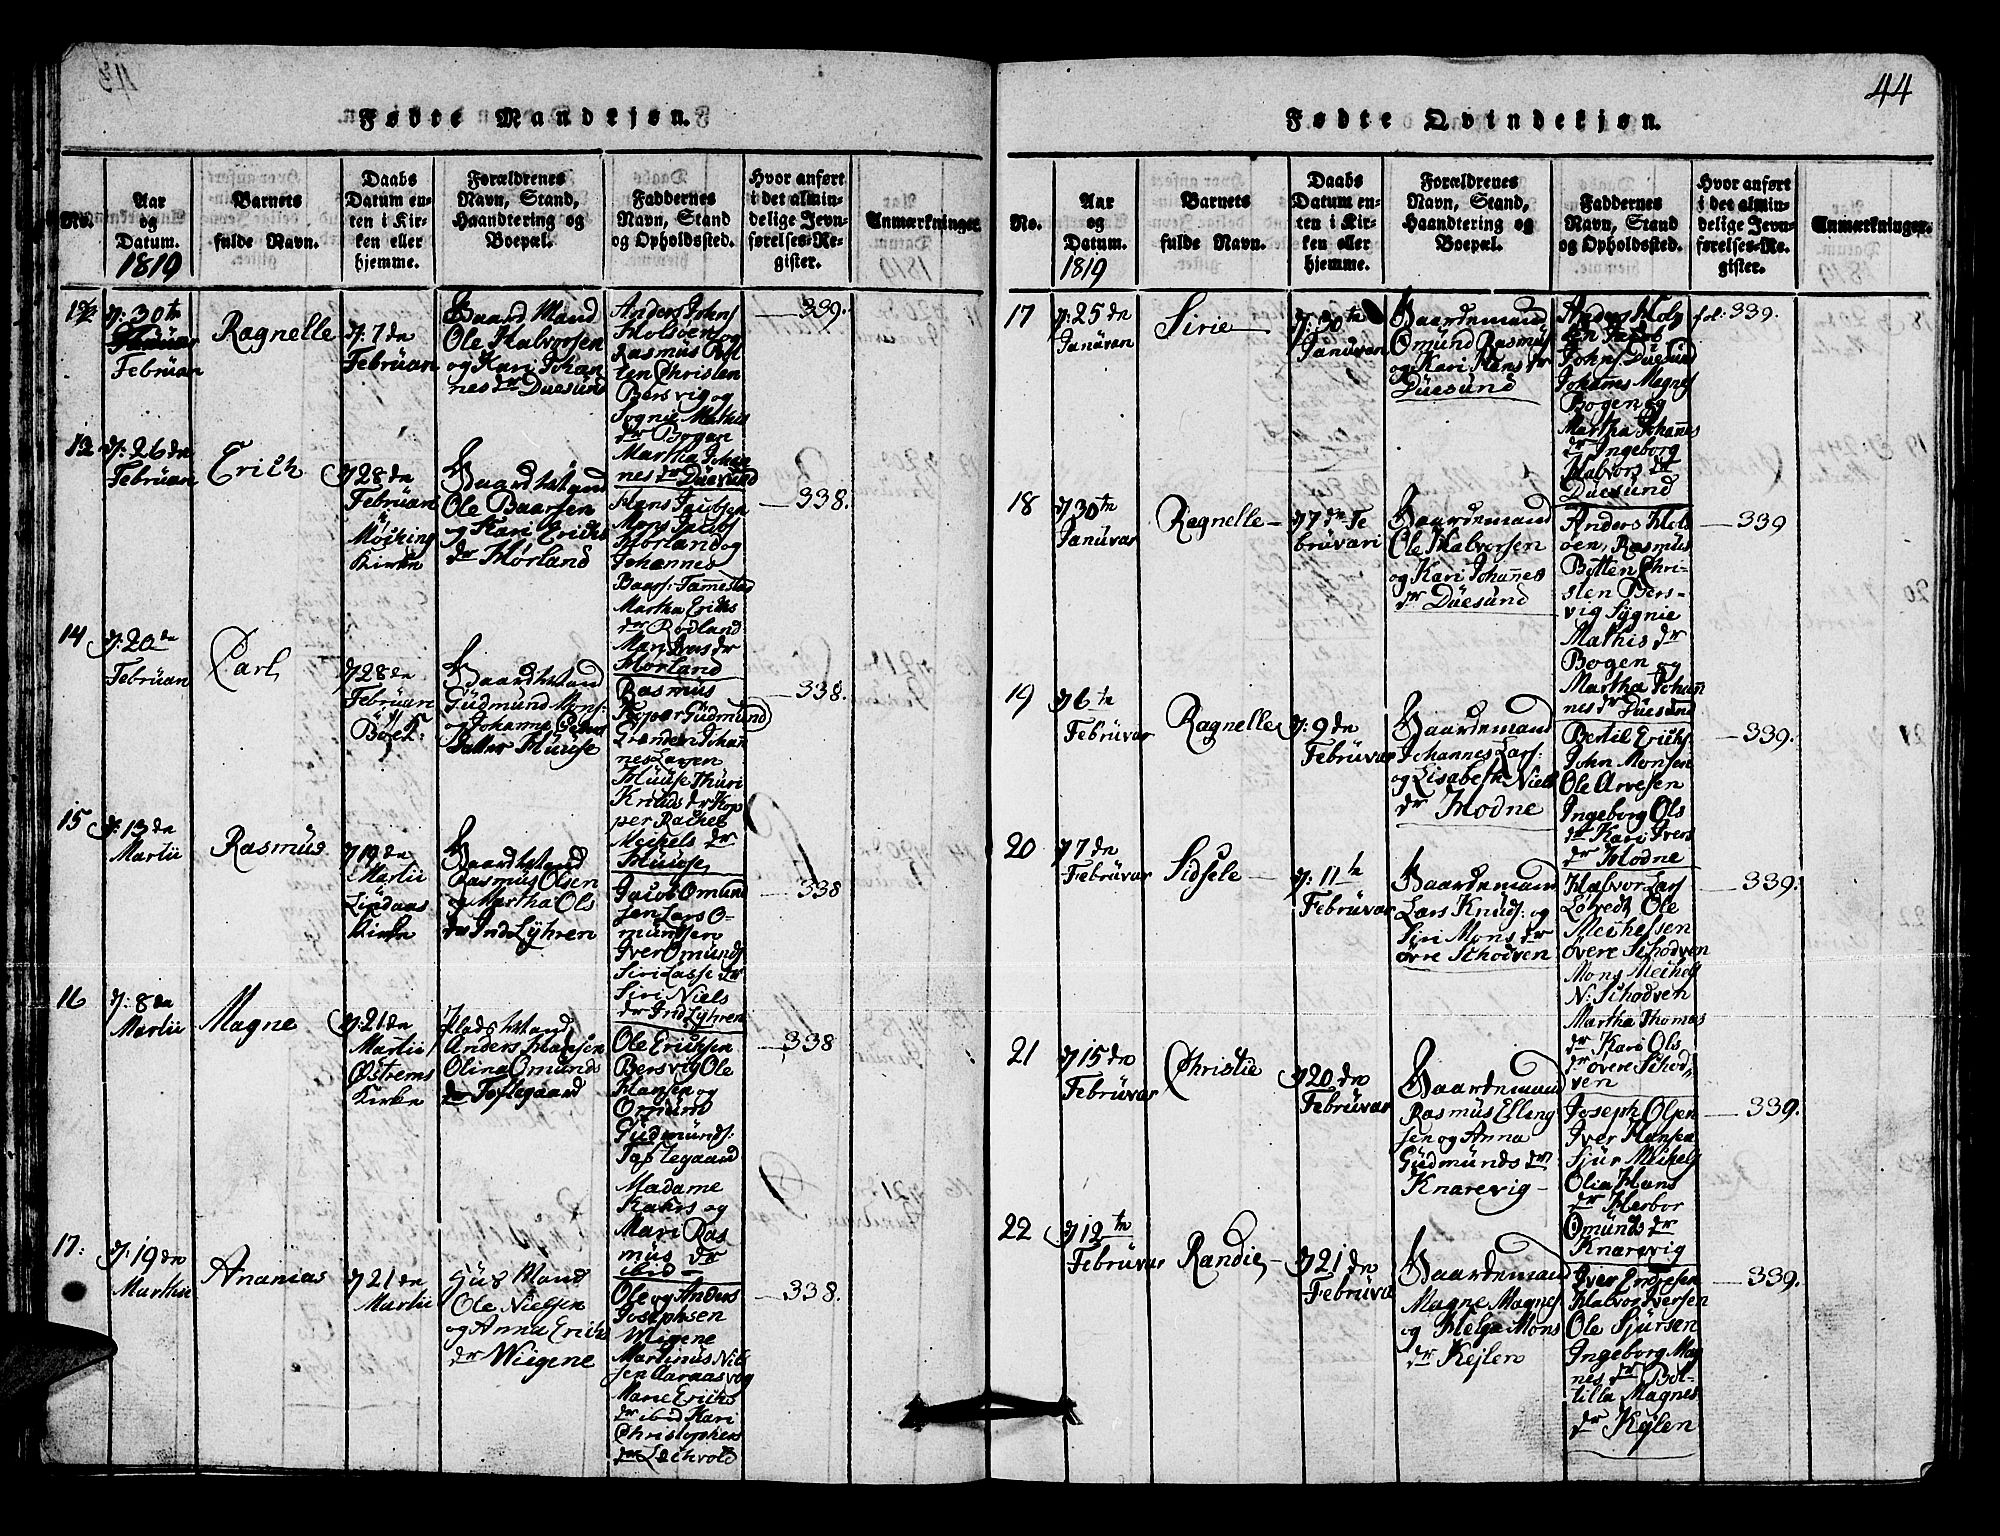 44
Fødte Mandkjøn.
No.
Aar
og
Datum.
1819
Barnets
fulde Navn.
Daabs
Datum en-
ten i Kir-
ken eller
hjemme.
Forældrenes
Navn, Stand,
Haandtering og
Boepæl.
Faddernes
Navn, Stand
og Opholdssted.
Hvor anført
i det almin-
delige Jevn-
førelses-Re-
gister.
Anmærkninger.
30te
Februari
Ragnelle
7de
Februari
Gaard Mand
Ole Halvorsen
og Kari Johan
nes dr Duesund
Anders Johns
Holsøen og
Rasmus Bot
ten Christen
Bersvig og
Sognie Mathis
dr Bogen
Martha Johan
nes dr Düesund
339.
13
26de
Februari
Erich
28de
Februari
Kirke
Ole Baarsen
og Kari Erichs
dr Hørland
Hans Jacobsen
Mons Jacobs
Hørland og
Johannes
Baars: Tamestad
Martha Erichs
dr Rødland
Mari Ivers dr
Hørland
338.
14
20de
Februari
Carl
28de
Februari
Gudmund Mons:
og Johanne
Rasmus
Gudmund
Johan
nes Larsen
338.
15
13de
Martii
Rasmus
19de
Martii
Lindaas
Kirke
Rasmus Olsen
Martha Ols
dr Ind Lyhren
Jacob Omund
sen Lars O-
mundsen
Iver Omunds
Siri Lasse dr
Siri Niels
dr Ind Lyhren
338
16
8de
Martii
Magne
21de
Martii
Østrems
Kirke
Anders Hansen
Olina Omunds
dr Toftegaard
Ole Ericksen
Bersvig Ole
Hansen og
Omund
Gudmunds:
Toftegaard
Madame
Kahrs og
Mari Ras
mus dr
ibid
338
17:
19de
Martii
Ananias
21de
Martii
Huus Mand
Ole Nielsen
og Anna Erichs
dr Wiigene
Ole og Anders
Josephsen
Wigene
Martinus Niel
sen Aaraas og
Marie Erichs
dr ibid Kari
Christophers
dr Lechvold
338.
Fødte Qvindekjøn.
No.
Aar
og
Datum.
1819
Barnets
fulde Navn.
Daabs
Datum en-
ten i Kir-
ken eller
hjemme.
Forældrenes
Navn, Stand,
Haandtering og
Boepæl.
Faddernes
Navn, Stand
og Opholdssted.
Hvor anført
i det almin-
delige Jevn-
førelses-Re-
gister.
Anmærkninger.
17
25de
Januvari
Sirie
30te
Januvari
Gaardemand
Omund Rasmus
og Kari Hans dr
Düesund
Anders Hols
øen Jacob
Johns Düesund
Johannes Magnes
Bogen og
Martha Johannes
dr Ingeborg
Halvors dr
Duesund
fol: 339.
18
30te
Januvar
Ragnelle
7de Fe
bruvari
Gaardemand
Ole Halvorsen
og Kari Johannes
dr Düesund
Anders Hols
øen, Rasmus
Botten Chri-
sten Bers-
vig Sygnie
Mathis dr
Bogen og
Martha Johan
nes dr Duesund
339
19
6te
Februvar
Ragnelle
9de
Februvar
Gaardemand
Johannes Lars:
og Lisabeth Niels
dr Hodne
Bertil Erichs
John Monsen
Ole Arvesen
Ingeborg Ols
dr Kari Ivers
dr Hodne
339.
20
7de
Februvar
Sidsele
11te
Februvar
Gaardemand
Lars Knuds: og
Siri Mons dr
øvre Schodven
Halvor Lars
Lotvedt Ole
Meihelsen
øvere Schodven
Mons Meihels
N: Schodven
Martha Thomas
dr Kari Ols
dr øvere Schod
ven
339.
21
15de
Februvar
Christie
20de
Februvar
Gaardemand
Rasmus Elling
sen og Anna
Gudmunds dr
Knarevig
Joseph Olsen
Iver Hansen
Sjur Meihels
Olia Hans
dr Herbor
Omunds dr
Knarevig
339.
22
12te
Februvar
Randie
21de
Februva
Gaardemand
Magne Magnes
og Helga Mons
dr Kejlen
Iver Endresen
Halvor Iversen
Ole Sjursen
Ingeborg Mag
nes dr Bol-
tilla Magnes
dr Kejlen
339.